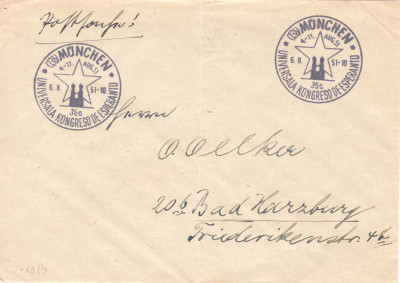 Postsache!
(13b) MÜNCHEN
4.-11. AUG. 51
6.8. 51-10
36a
UNIVERSALA KONGRESO DE ESPERANTO
(13b) MÜNCHEN
4.-11. AUG. 51
6.8. 51-10
36a
UNIVERSALA KONGRESO DE ESPERANTO
Herrn
O. Oelker
20b Bad Harzburg
Friederikenstr. 4b